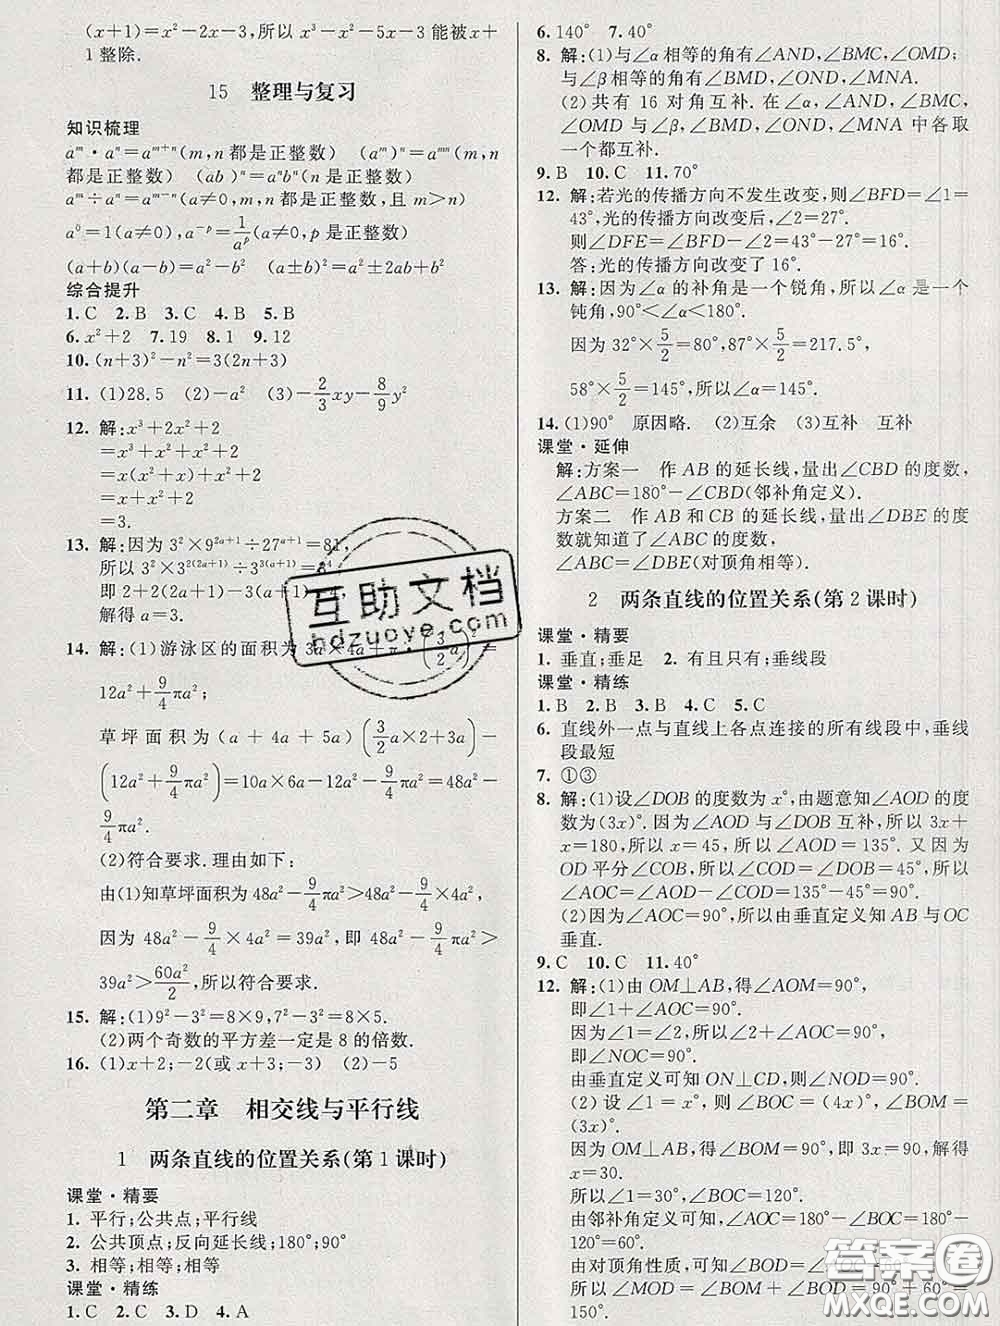 (x+1)=x²-2x-3,所以 x³-x²-5x-3 能被 x+
1 整除.
15 整理与复习
知识梳理
aᵐ·aⁿ=aᵐ⁺ⁿ(m,n 都是正整数) (aᵐ)ⁿ=aᵐⁿ(m,n
都是正整数) (ab)ⁿ=aⁿbⁿ(n 是正整数)
aᵐ÷aⁿ=aᵐ⁻ⁿ(a≠0,m,n 都是正整数,且 m>n)
a⁰=1(a≠0),a⁻ᵖ=1/aᵖ(a≠0,p 是正整数)
(a+b)(a-b)=a²-b² (a±b)²=a²±2ab+b²
综合提升
1.C 2.B 3.C 4.B 5.B
6.x²+2 7.19 8.1 9.12
10.(n+3)²-n²=3(2n+3)
11.(1)28.5 (2)-a² (3)-2/3xy-8/9y²
12.解:x³+2x²+2
=x³+x²+x²+2
=x(x²+x)+x²+2
=x+x²+2
=3.
13.解:因为 3²×9²ᵃ⁺¹÷27ᵃ⁺¹=81,
所以 3²×3²⁽²ᵃ⁺¹⁾÷3³⁽ᵃ⁺¹⁾=3⁴,
即 2+2(2a+1)-3(a+1)=4.
解得 a=3.
14.解:(1)游泳区的面积为 3a×4a+π·(3/2a)²=
12a²+9/4πa²;
草坪面积为(a+4a+5a)(3/2a×2+3a)-
(12a²+9/4πa²)=10a×6a-12a²-9/4πa²=48a²-
9/4πa².
(2)符合要求.理由如下:
由(1)知草坪面积为 48a²-9/4πa²>48a²-9/4×4a²,
因为 48a²-9/4×4a²=39a²,即 48a²-9/4πa²>
39a²>60a²/2,所以符合要求.
15.解:(1)9²-3²=8×9,7²-3²=8×5.
(2)两个奇数的平方差一定是 8 的倍数.
16.(1)x+2;-2(或 x+3;-3) (2)-5
第二章 相交线与平行线
1 两条直线的位置关系(第 1 课时)
课堂·精要
1.平行;公共点;平行线
2.公共顶点;反向延长线;180°;90°
3.相等;相等;相等
课堂·精练
1.C 2.C 3.D 4.A
6.140° 7.40°
8.解:(1)与∠α 相等的角有∠AND,∠BMC,∠OMD;
与∠β 相等的角有∠BMD,∠OND,∠MNA.
(2)共有 16 对角互补.在∠α,∠AND,∠BMC,
∠OMD 与∠β,∠BMD,∠OND,∠MNA 中各取
一个都互补.
9.B 10.C 11.70°
12.解:若光的传播方向不发生改变,则∠BFD=∠1=
43°,光的传播方向改变后,∠2=27°.
则∠DFE=∠BFD-∠2=43°-27°=16°.
答:光的传播方向改变了 16°.
13.解:因为∠α 的补角是一个锐角,所以∠α 是一个
钝角,90°<∠α<180°.
因为 32°×5/2=80°,87°×5/2=217.5°,
58°×5/2=145°,所以∠α=145°.
14.(1)90° 原因略. (2)互余 (3)互补 互补
课堂·延伸
解:方案一 作 AB 的延长线,量出∠CBD 的度数,
∠ABC=180°-∠CBD(邻补角定义).
方案二 作 AB 和 CB 的延长线,量出∠DBE 的度
数就知道了∠ABC 的度数,
∠ABC=∠DBE(对顶角相等).
2 两条直线的位置关系(第 2 课时)
课堂·精要
1.垂直;垂足 2.有且只有;垂线段
课堂·精练
1.B 2.B 3.B 4.C 5.C
6.直线外一点与直线上各点连接的所有线段中,垂线
段最短
7.①③
8.解:(1)设∠DOB 的度数为 x°,由题意知∠AOD 的度
数为(3x)°.因为∠AOD 与∠DOB 互补,所以 3x+
x=180,所以 x=45,所以∠AOD=135°.又因为
OD 平分∠COB,所以∠COD=∠DOB=45°,所以
∠AOC=∠AOD-∠COD=135°-45°=90°.
(2)因为∠AOC=90°,所以由垂直定义知 AB 与 OC
垂直.
9.C 10.C 11.40°
12.解:(1)由 OM⊥AB,得∠AOM=90°,
即∠1+∠AOC=90°.
因为∠1=∠2,所以∠2+∠AOC=90°,
即∠NOC=90°.
由垂直定义可知 ON⊥CD,则∠NOD=90°.
(2)设∠1=x°,则∠BOC=(4x)°,∠BOM=
(3x)°.
因为 OM⊥AB,得∠BOM=90°,即 3x=90,解得
x=30.
所以∠1=30°,∠BOC=120°.
由邻补角定义可知,∠AOC=180°-∠BOC=180°-
120°=60°.
由对顶角性质可知,∠BOD=∠AOC=60°.
所以∠MOD=∠BOM+∠BOD=90°+60°=
150°.
互助文档
hdzuoye.com
答案圈
MXQE.COM